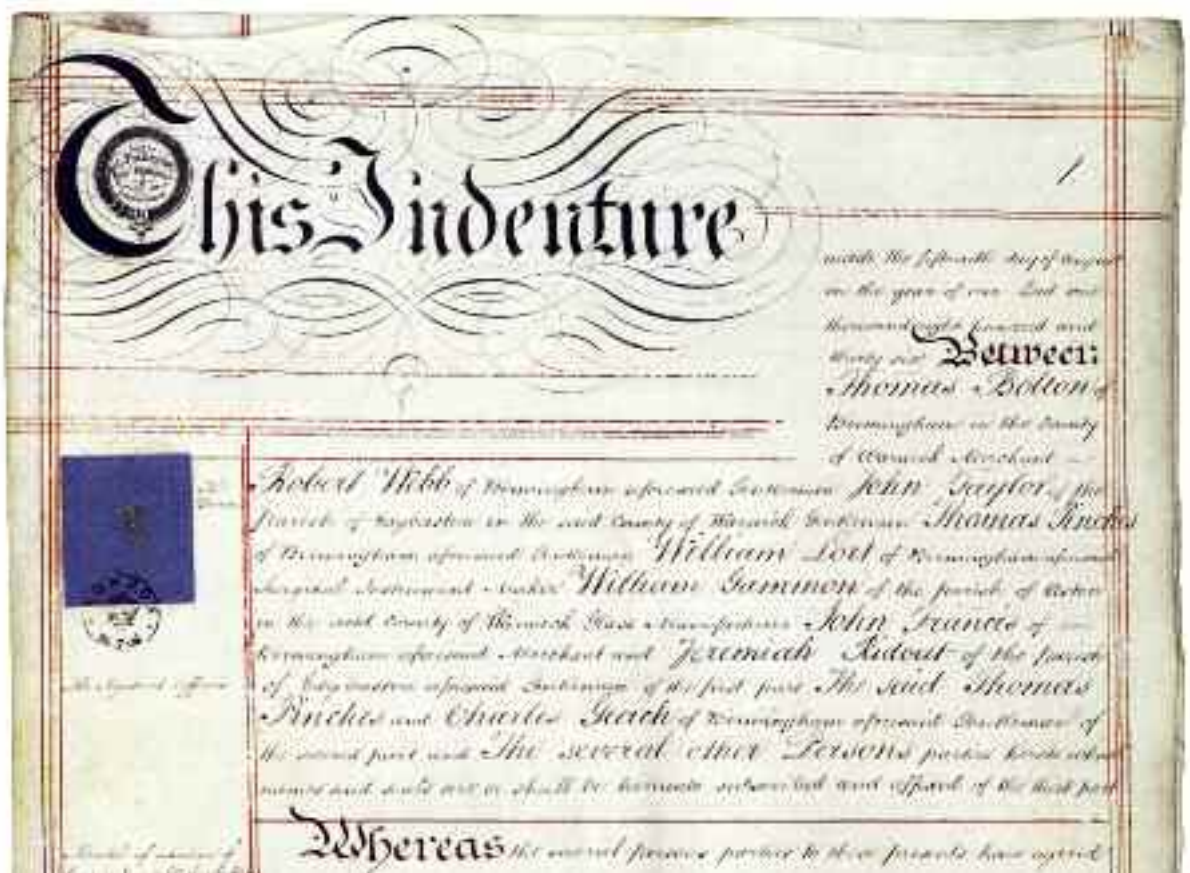 This Indenture
1
made the fifteenth day of August
in the year of our Lord one
thousand eight hundred and
thirty six Between
Thomas Bolton of
Birmingham in the County
of Warwick Merchant
Robert Webb of Birmingham aforesaid Gentleman John Taylor of the
Parish of Edgbaston in the said County of Warwick Gentleman Thomas Pinches
of Birmingham aforesaid Gentleman William Lort of Birmingham aforesaid
Surgical Instrument Maker William Gammon of the parish of Aston
in the said County of Warwick Glass Manufacturer John Francis of
Birmingham aforesaid Merchant and Jeremiah Ridout of the parish
of Edgbaston aforesaid Gentleman of the first part The said Thomas
Pinches and Charles Geach of Birmingham aforesaid Gentleman of
the second part and The several other Persons parties hereto whose
names and seals are or shall be hereunto subscribed and affixed of the third part
Whereas the several persons parties to these presents have agreed